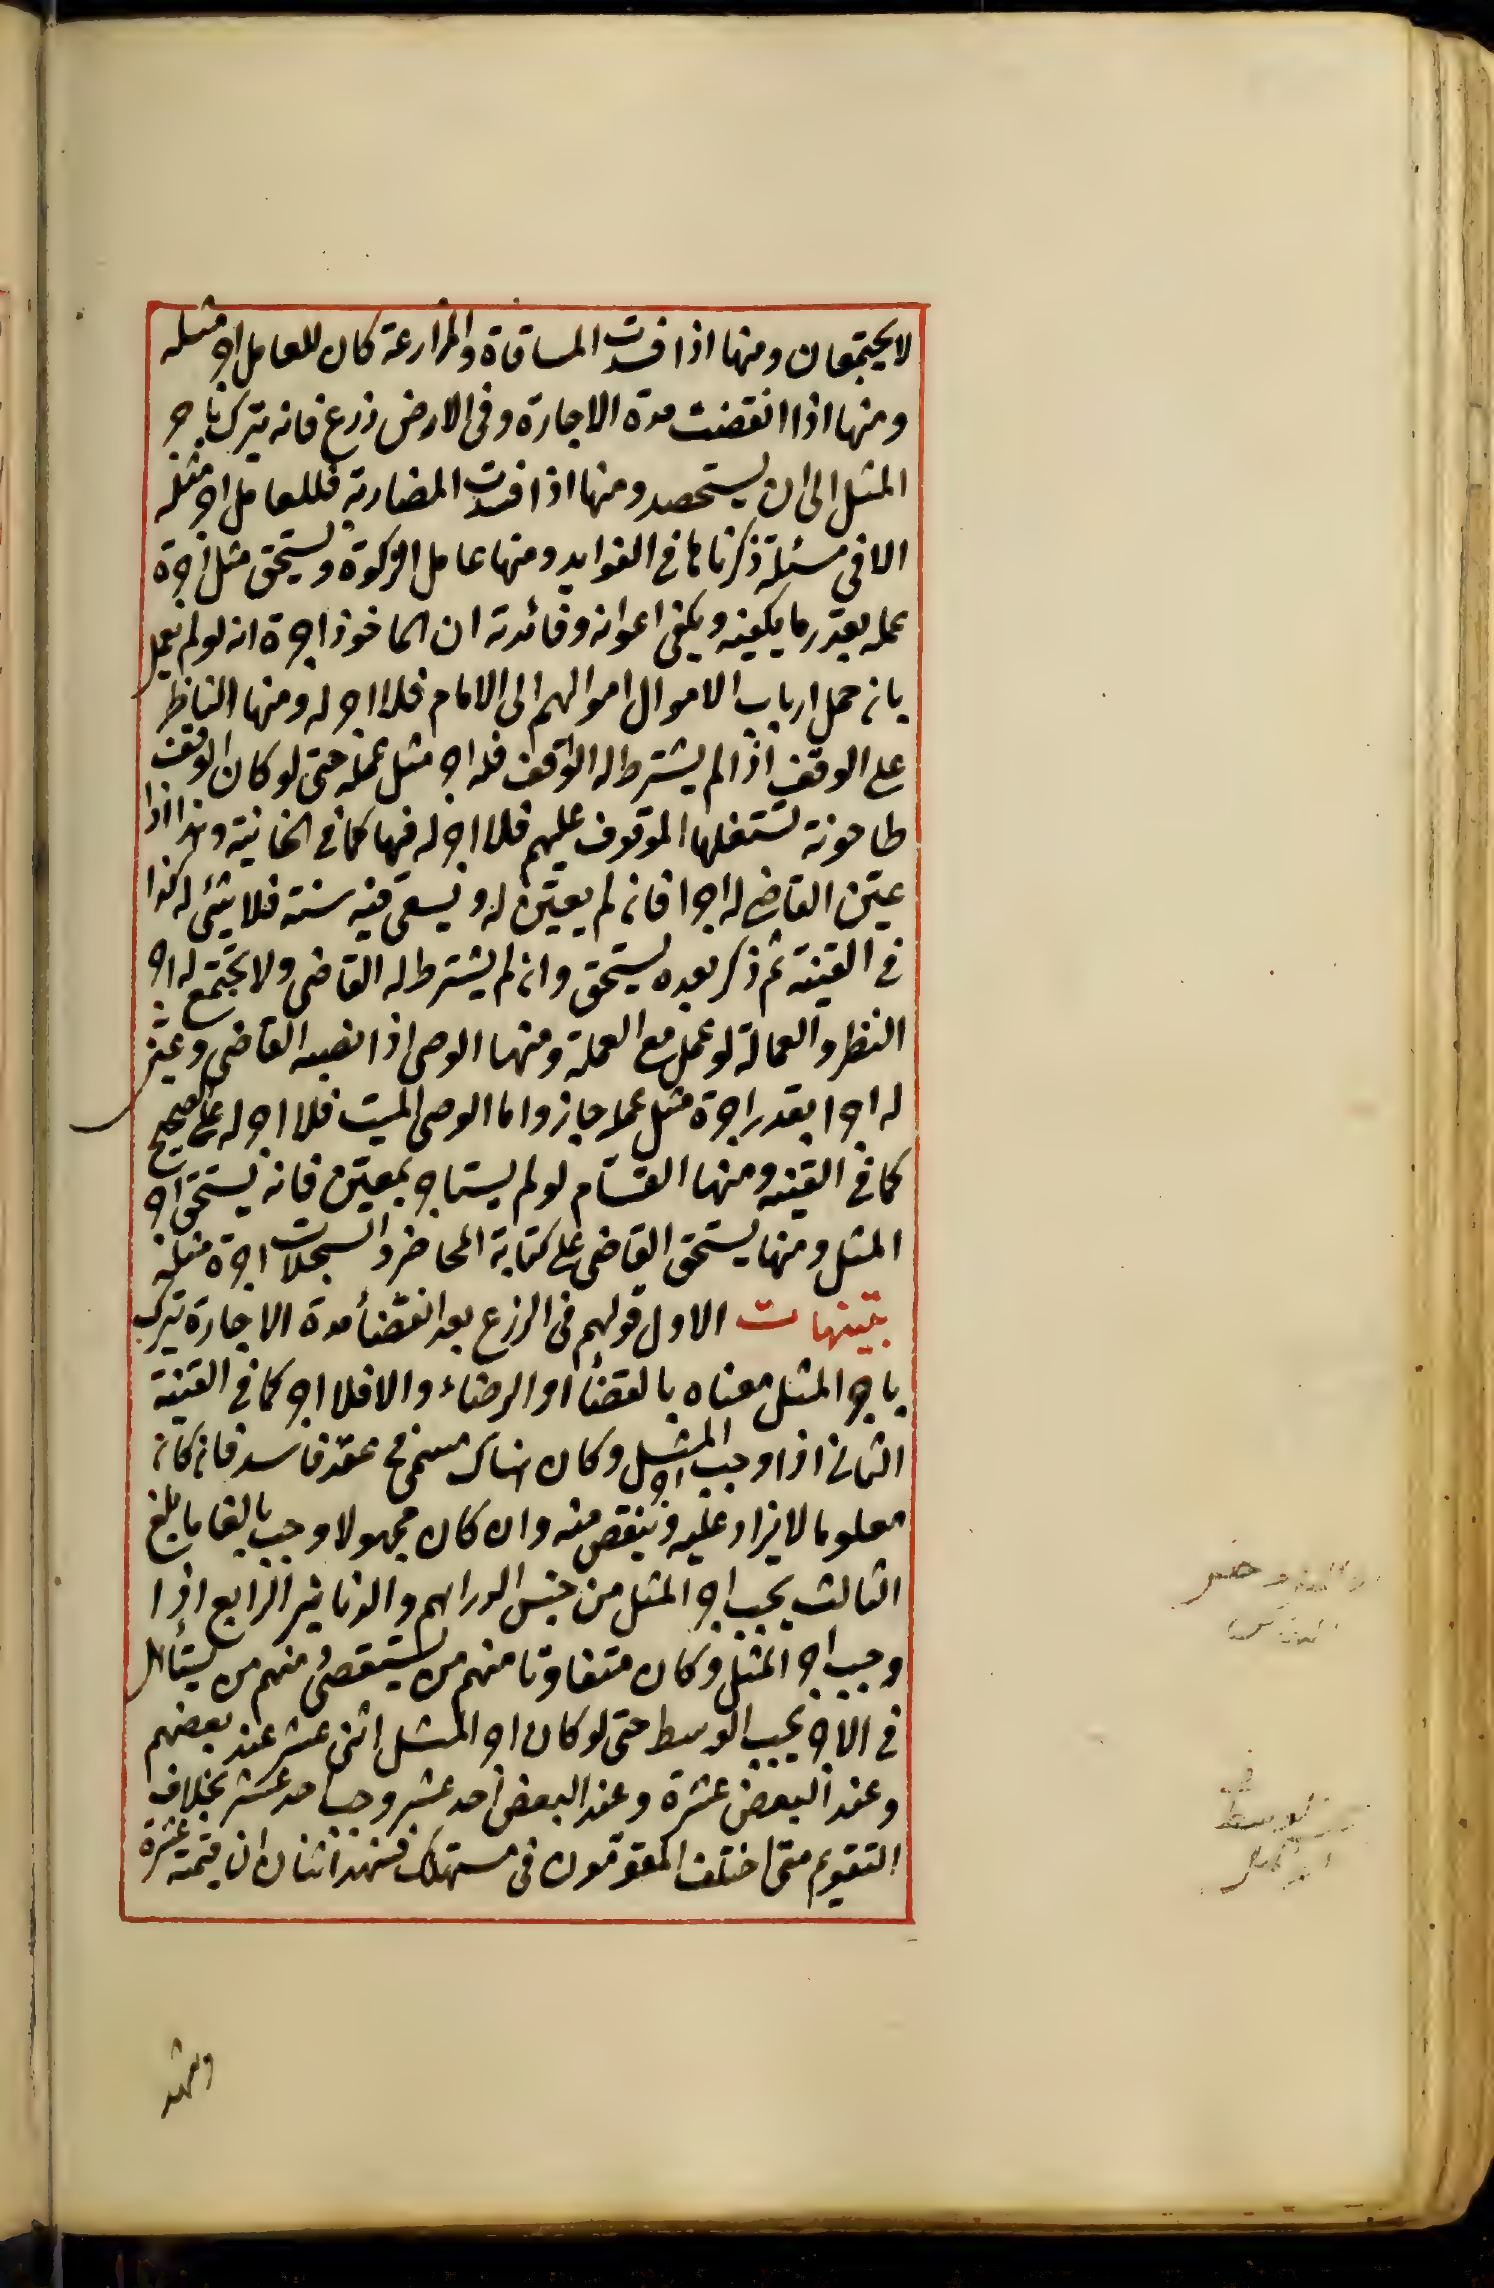 لا يجتمعان ومنها اذا فسدت المساقاة والمزارعة كان للعامل اجر مثله
ومنها اذا انقضت مدة الاجارة وفى الارض زرع فانه يترك باجر
المثل الى ان يستحصد ومنها اذا فسدت المضاربة فللعامل اجر مثله
الا فى مسئلة ذكرناها فى الفوايد ومنها عامل الزكوة ويستحق مثل اجرة
عمله بقدر ما يكفيه ويكفى اعوانه وفائدته ان الماخوذ اجرة انه لو لم يعمل
بان حمل ارباب الاموال اموالهم الى الامام فلا اجر له ومنها الناظر
على الوقف اذا لم يشترط له الواقف فله اجر مثل عمله حتى لو كان الوقف
طاحونة تستغلها الموقوف عليهم فلا اجر له فيها كما فى الخانية وهذا اذا
عين القاضى له اجرا فان لم يعين له وسعى فيه سنة فلا شئى له كذا
فى القنية ثم ذكر بعده يستحق وان لم يشترط له القاضى ولا يجتمع له اجر
النظر والعمالة لو عمل مع العملة ومنها الوصى اذا نصبه القاضى وعين
له اجرا بقدر اجرة مثل عمله جاز واما الوصى الميت فلا اجر له على الصحيح
كما فى القنيه ومنها القسام لو لم يستاجر بمعين فانه يستحق اجر
المثل ومنها يستحق القاضى على كتابة المحاضر والسجلات اجرة مثله
تنبيهات الاول قولهم فى الزرع بعد انقضأ مدة الاجارة يترك
باجر المثل معناه بالقضأ او الرضاء والا فلا اجر كما فى القنية
الثانى اذا وجب اجر المثل وكان هناك مسمى فى عقد فاسد فان كان
معلوما لا يزاد عليه وينقص منه وان كان مجهولا وجب بالغا ما بلغ
الثالث يجب اجر المثل من جنس الدراهم والدنانير الرابع اذا
وجب اجر المثل وكان متفاوتا منهم من يستقصى ومنهم من يستأهل
فى الاجر يجب الوسط حتى لو كان اجر المثل اثنى عشر عند بعضهم
وعند البعض عشرة وعند البعض احد عشر وجب احد عشر بخلاف
التقويم متى اختلف المقومون فى مستهلك فشهد اثنان ان قيمته عشرة
وشهد